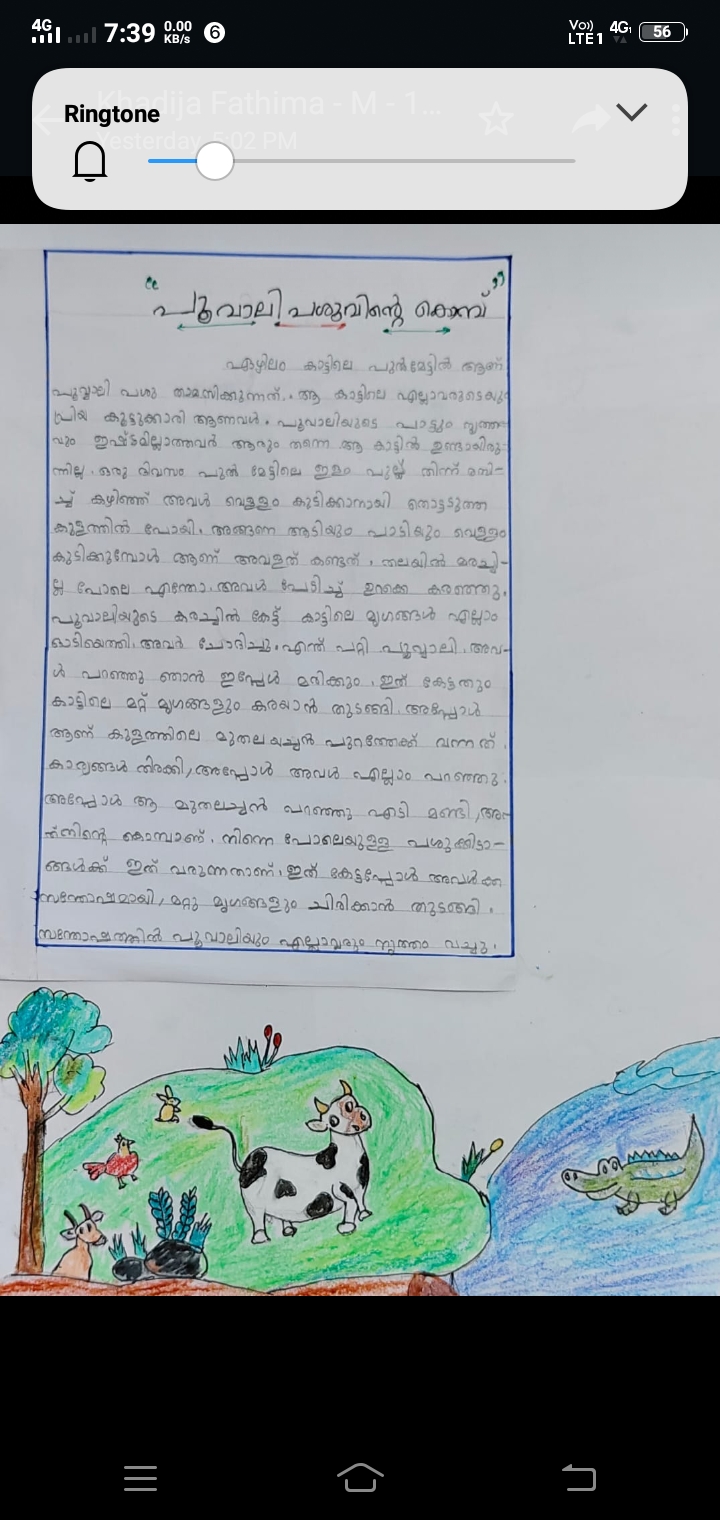 4G 7:39 0.00 KB/s 6 Vo)) LTE1 4G 56
Khadija Fathima - M - 1...
Ringtone
Yesterday, 5:02 PM
"പൂവാലി പശുവിന്റെ കൊമ്പ്"
ഏഴിലം കാട്ടിലെ പുൽമേട്ടിൽ ആണ്
പൂവ്വാലി പശു താമസിക്കുന്നത്. ആ കാട്ടിലെ എല്ലാവരുടെയും
പ്രിയ കൂട്ടുക്കാരി ആണവൾ. പൂവാലിയുടെ പാട്ടും നൃത്ത
വും ഇഷ്ടമില്ലാത്തവർ ആരും തന്നെ ആ കാട്ടിൽ ഉണ്ടായിരു-
ന്നില്ല. ഒരു ദിവസം പുൽ മേട്ടിലെ ഇളം പുല്ല് തിന്ന് മദി-
ച്ച് കഴിഞ്ഞ് അവൾ വെള്ളം കുടിക്കാനായി തൊട്ടടുത്ത
കുളത്തിൽ പോയി. അങ്ങനെ ആടിയും പാടിയും വെള്ളം
കുടിക്കുമ്പോൾ ആണ് അവളത് കണ്ടത്. തലയിൽ മരച്ചി-
ല്ല പോലെ എന്തോ. അവൾ പേടിച്ച് ഉറക്കെ കരഞ്ഞു.
പൂവാലിയുടെ കരച്ചിൽ കേട്ട് കാട്ടിലെ മൃഗങ്ങൾ എല്ലാം
ഓടിയെത്തി. അവർ ചോദിച്ചു. എന്ത് പറ്റി പൂവ്വാലി. അവ-
ൾ പറഞ്ഞു ഞാൻ ഇപ്പോൾ മരിക്കും. ഇത് കേട്ടതും
കാട്ടിലെ മറ്റ് മൃഗങ്ങളും കരയാൻ തുടങ്ങി. അപ്പോൾ
ആണ് കുളത്തിലെ മുതലയച്ചൻ പുറത്തേക്ക് വന്നത്.
കാര്യങ്ങൾ തിരക്കി, അപ്പോൾ അവൾ എല്ലാം പറഞ്ഞു.
അപ്പോൾ ആ മുതലച്ചൻ പറഞ്ഞു എടി മണ്ടി, അത്
നിന്റെ കൊമ്പാണ്. നിന്നെ പോലെയുള്ള പശുക്കിടാ-
ങ്ങൾക്ക് ഇത് വരുന്നതാണ്. ഇത് കേട്ടപ്പോൾ അവൾക്ക
സന്തോഷമായി, മറ്റു മൃഗങ്ങളും ചിരിക്കാൻ തുടങ്ങി.
സന്തോഷത്തിൽ പൂവാലിയും എല്ലാവരും നൃത്തം വച്ചു.